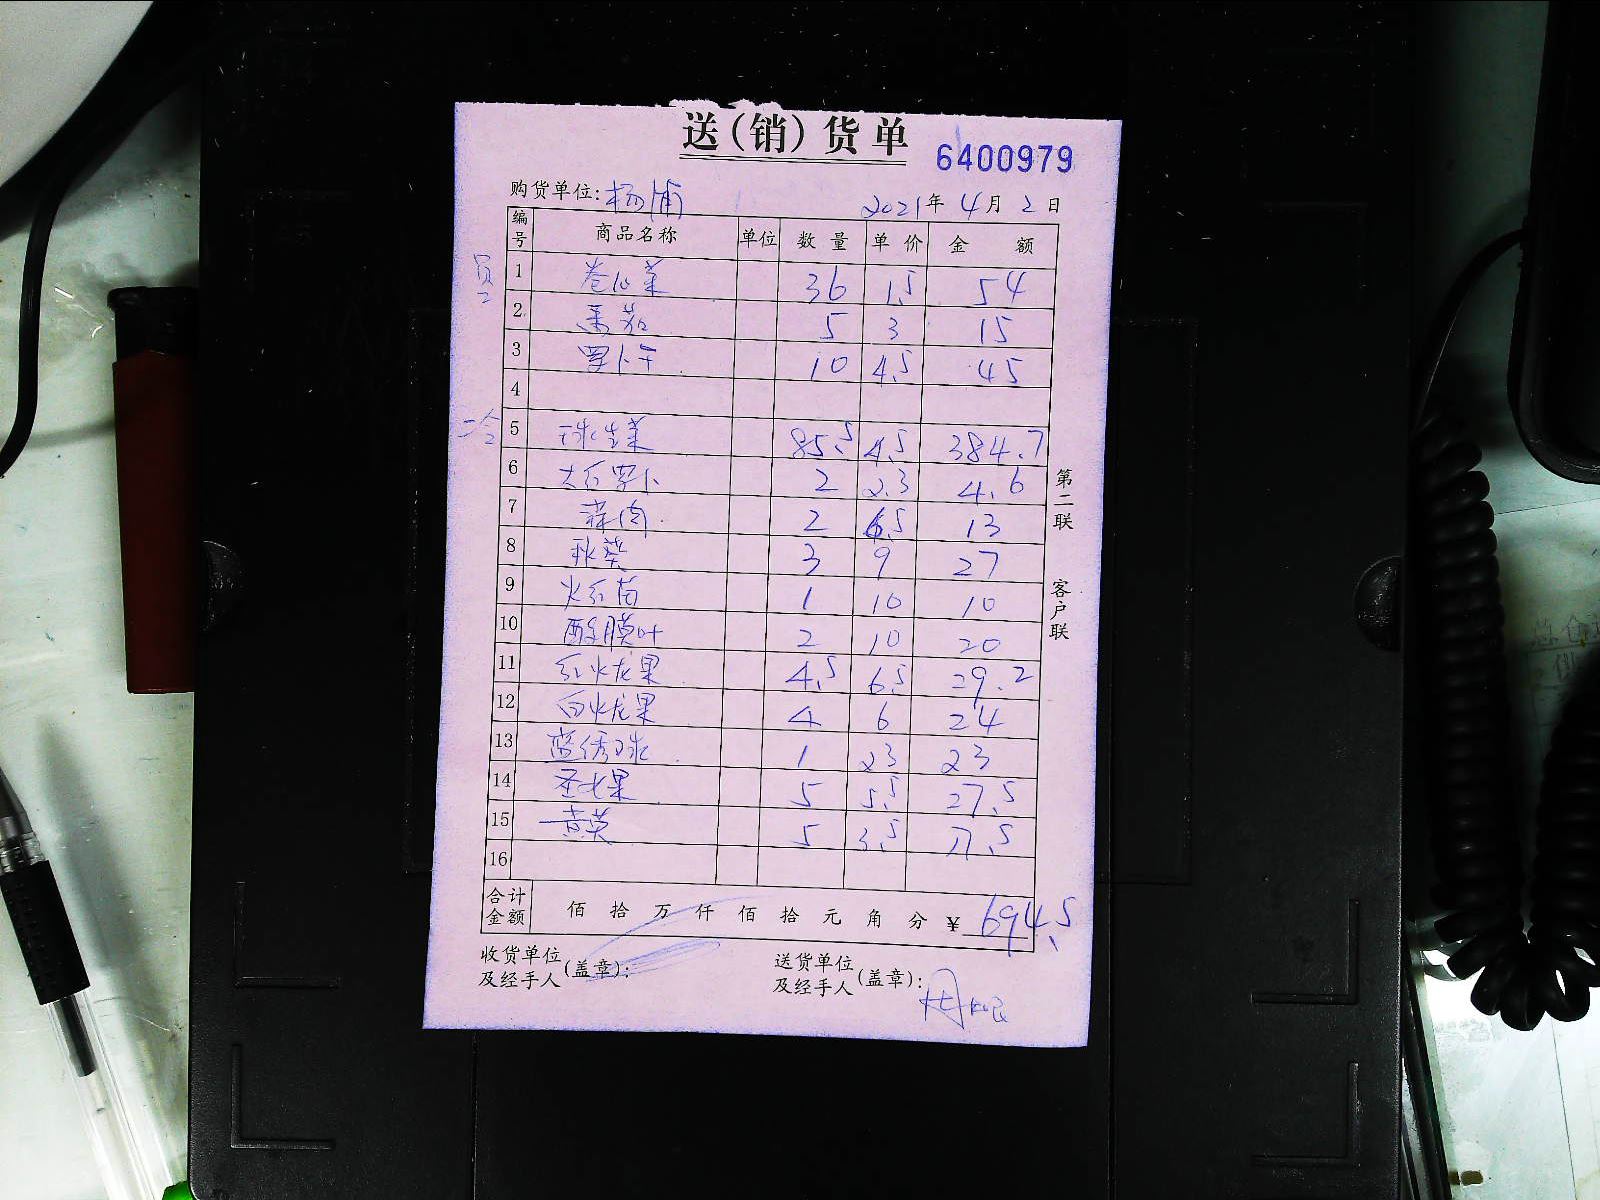 送(销)货单
6400979
购货单位:杨浦 2021年4月2日
编号 商品名称 单位 数量 单价 金额
员工
1 卷心菜 36 1.5 54
2 番茄 5 3 15
3 罗卜干 10 4.5 45
4
二仓
5 球生菜 85.5 4.5 384.7
6 大红罗卜 2 2.3 4.6
7 蒜肉 2 6.5 13
8 秋葵 3 9 27
9 火红苗 1 10 10
10 酸膜叶 2 10 20
11 红火龙果 4.5 6.5 29.2
12 白火龙果 4 6 24
13 蓝绣球 1 23 23
14 圣女果 5 5.5 27.5
15 5 3.5 17.5
16
合计金额 佰 拾 万 仟 佰 拾 元 角 分 ¥ 694.5
收货单位及经手人(盖章): 送货单位及经手人(盖章):
第二联 客户联